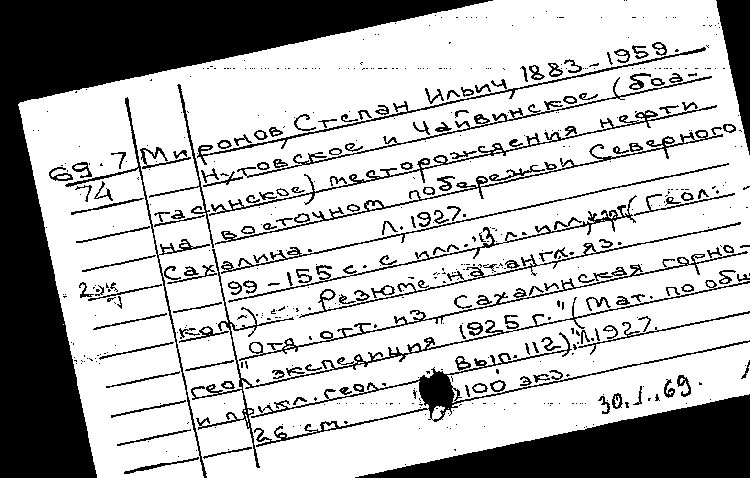 Миронов, Степан Ильич, 1883-1959.
69.7 Нутовское и Чайвинское (Боа-
74 тасинское) месторождения нефти
на восточном побережьи Северного
Сахалина. Л., 1927.
2 экз 99-155 с. с илл.; 3 л. илл., карт. (Геол.
ком.) Резюме на англ. яз.
"Отд. отт. из "Сахалинская горно-
геол. экспедиция 1925 г." (Мат. по общ.
и прикл. геол. Вып. 112)", Л., 1927.
26 см. 100 экз.
30.I.69.